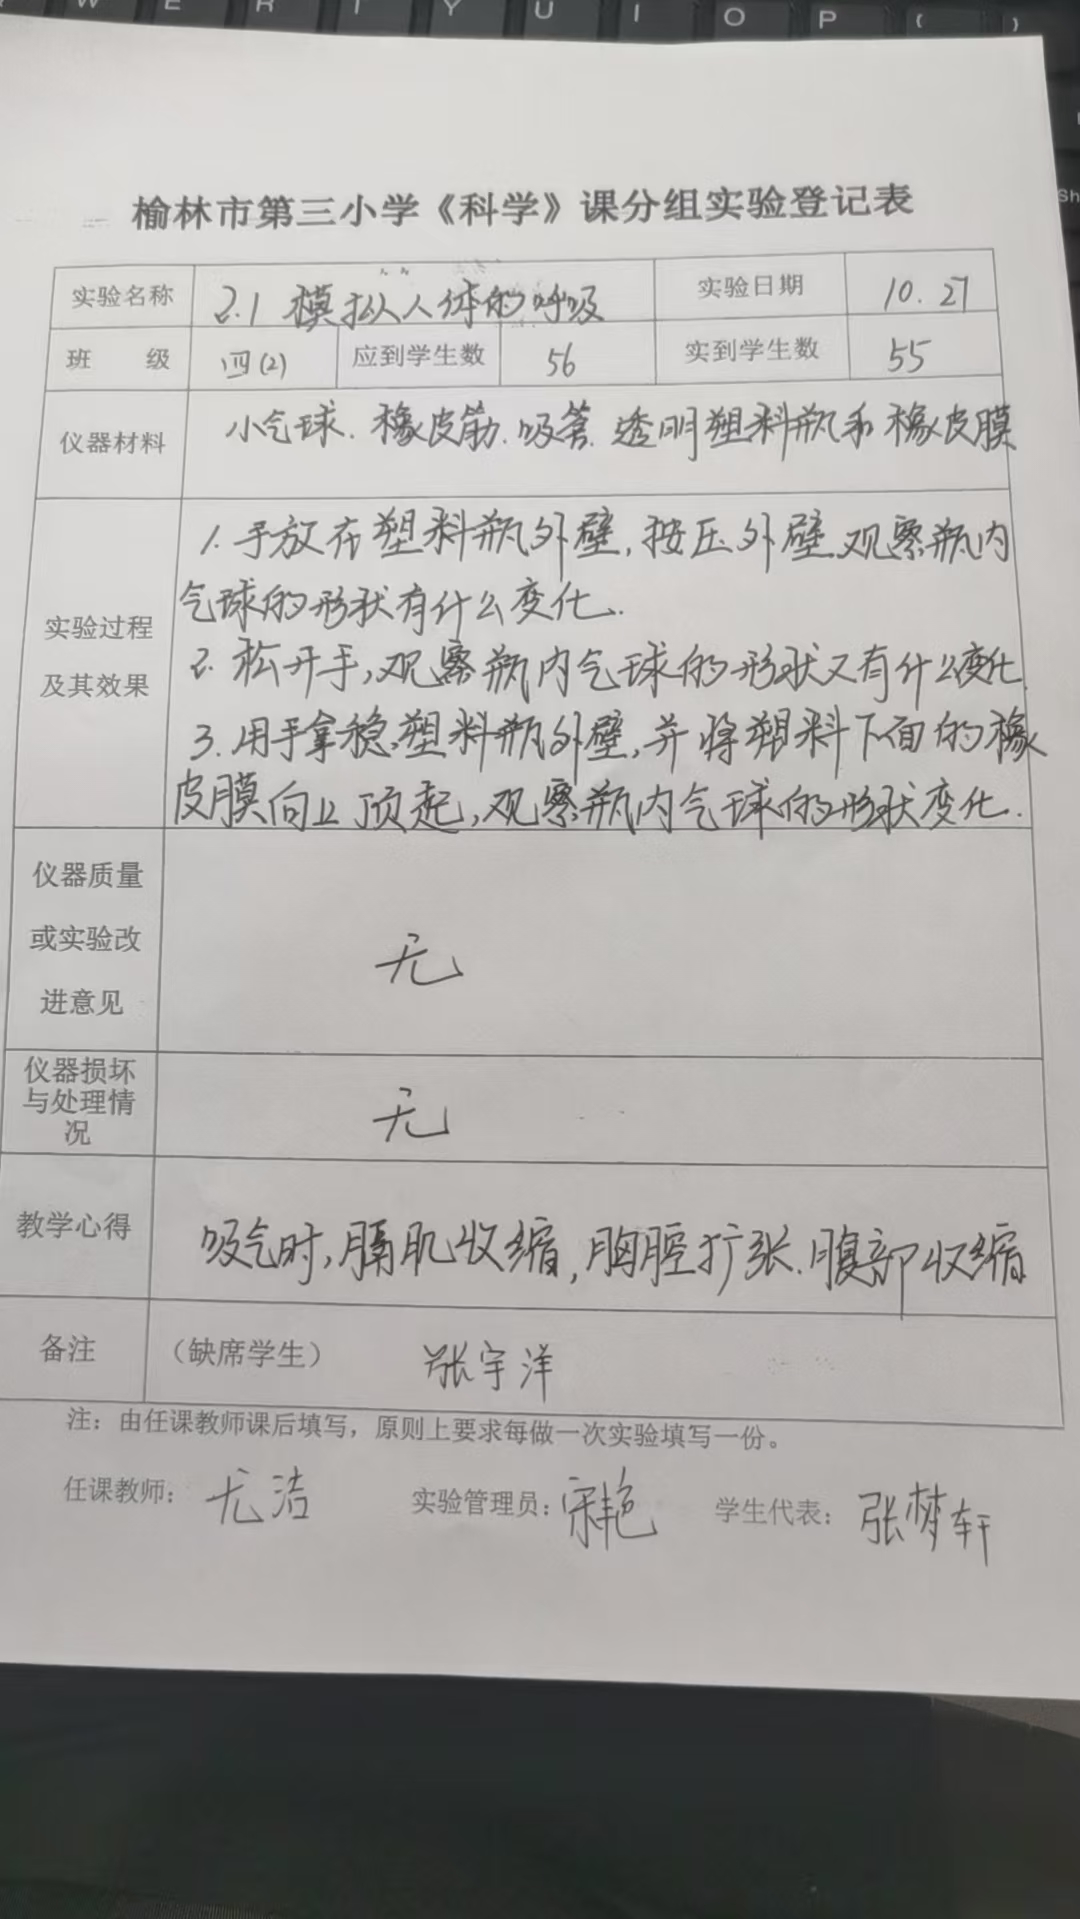 W E R T Y U I O P { }
Sh
榆林市第三小学《科学》课分组实验登记表
实验名称 2.1 模拟人体的呼吸 实验日期 10.27
班 级 四(2) 应到学生数 56 实到学生数 55
仪器材料 小气球.橡皮筋.吸管.透明塑料瓶和橡皮膜
1.手放在塑料瓶外壁,按压外壁.观察瓶内
气球的形状有什么变化.
实验过程
及其效果
2.松开手,观察瓶内气球的形状又有什么变化.
3.用手拿稳塑料瓶外壁,并将塑料下面的橡
皮膜向上顶起,观察瓶内气球的形状变化.
仪器质量
或实验改
进意见
无
仪器损坏
与处理情
况
无
教学心得 吸气时,膈肌收缩,胸腔扩张.腹部收缩
备注 (缺席学生) 张宇洋
注:由任课教师课后填写,原则上要求每做一次实验填写一份。
任课教师: 尤洁 实验管理员: 宋艳 学生代表: 张梦轩